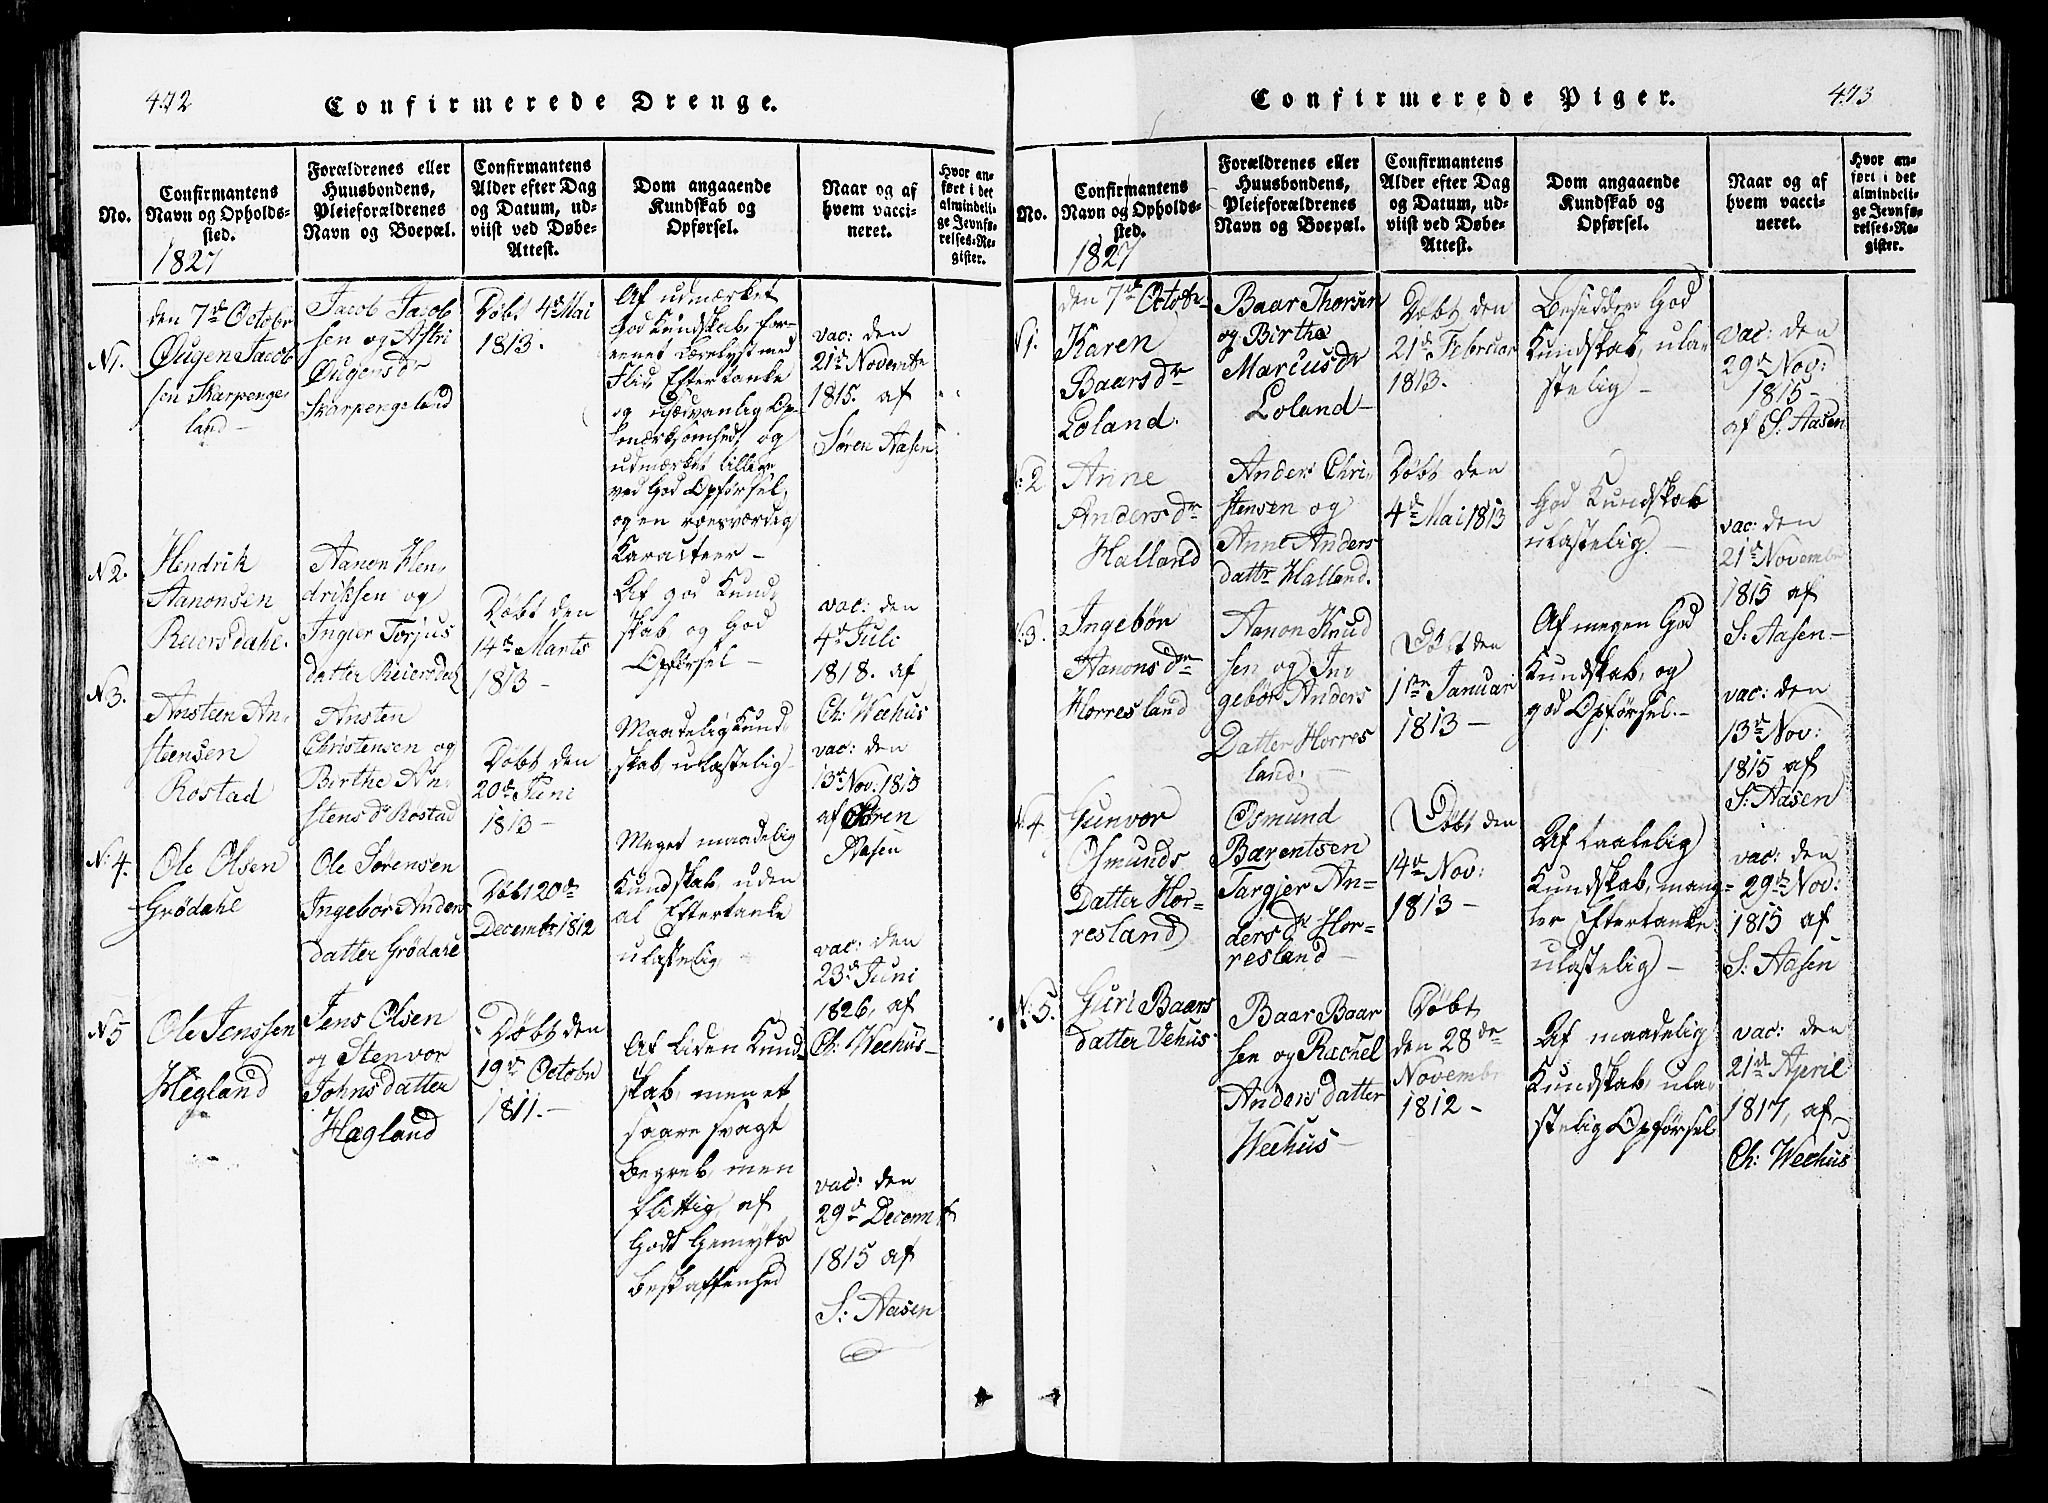 472
Confirmerede Drenge.
No.
Confirmantens
Navn og Opholds-
sted.
1827
Forældrenes eller
Huusbondens,
Pleieforældrenes
Navn og Boepæl.
Confirmantens
Alder efter Dag
og Datum, ud-
viist ved Døbe-
Attest.
Dom angaaende
Kundskab og
Opførsel.
Naar og af
hvem vacci-
neret.
Hvor an-
ført i det
almindeli-
ge Jevnfø-
relses-Re-
gister.
N1.
den 7de Octobr
Øugen Jacob
sen Skarpenge-
land-
Jacob Jacob
sen og Astri
Øugensdr
Skarpengeland
Døbt 4de Mai
1813.
Af udmærket
God Kundskab, for-
eenet Lærelyst med
Flid Eftertanke
og usædvanlig Op-
mærksomhed, og
udmærket tillige
ved God Opførsel,
og en roesværdig
Karacteer-
vac: den
21de Novembr
1815. af
Søren Aasen
N2.
Hendrik
Aanonsen
Reiersdahl.
Aanon Hen-
driksen og
Ingier Torjus
datter Reiersdahl
Døbt den
14de Marts
1813-
Af god Kund-
skab og God
Opførsel-
vac: den
4de Juli
1818. af
Ch: Weehus
N3.
Ansteen An-
steensen
Rostad
Ansten
Christensen og
Birthe An-
stensdr Rostad
Døbt den
20de Juni
1813-
Maadelig Kund-
skab ulastelig
vac: den
13de Nov. 1815
af Søren
Aasen
N:4.
Ole Olsen
Grödahl
Ole Sørensen
Ingebor Anders
datter Grödahl
Døbt 20de
Decembr 1812
Meget maadelig
Kundskab, uden
al Eftertanke
ulastelig
vac: den
23de Juni
1826, af
Ch: Weehus-
N5
Ole Jenssen
Hegland
Jens Olsen
og Stenvor
Johnsdatter
Hægland
Døbt den
19de Octobr
1811.-
Af liden Kund-
skab, men et
saare svagt
Begreb, men
flittig, af
Godt Gemyts
beskaffenhed
vac: den
29de Decem
1815 af
S: Aasen
Confirmerede Piger.
473
No.
Confirmantens
Navn og Opholds-
sted.
1827
Forældrenes eller
Huusbondens,
Pleieforældrenes
Navn og Boepæl.
Confirmantens
Alder efter Dag
og Datum, ud-
viist ved Døbe-
Attest.
Dom angaaende
Kundskab og
Opførsel.
Naar og af
hvem vacci-
neret.
Hvor an-
ført i det
almindeli-
ge Jevnfø-
relses-Re-
gister.
N1.
den 7de Octobr
Karen
Baarsdr
Loland.
Baar Thorsen
og Birthe
Marcusdr
Loland-
Døbt den
21de Februar
1813.
Besidder God
Kundskab, ula-
stelig-
vac: den
29de Nov:
1815-
af S: Aasen
N:2
Anne
Andersdr
Halland
Anders Chri-
stensen og
Anne Anders
dattr Halland.
Døbt den
4de Mai 1813
God Kundskab
ulastelig.-
vac: den
21de Novembr
1815 af
S: Aasen-
N:3.
Ingebor
Aanonsdr
Horresland
Aanon Knud
sen og In-
gebor Anders
Datter Horres
land.-
Døbt den
1ste Januari
1813-
Af megen God
Kundskab, og
god Opførsel.-
vac: den
13de Nov:
1815 af
S: Aasen
N:4.
Gunvor
Osmunds
Datter Hor-
resland
Osmund
Bærentsen
Targjer An-
dersdr Hor-
resland-
Døbt den
14de Nov:
1813-
Af taalelig
Kundskab, mang-
ler Eftertanke
ulastelig-
vac: den
29de Nov:
1815 af
S: Aasen
N:5.
Guri Baars
datter Vehus
Baar Baar
sen og Rachel
Andersdatter
Weehus-
Døbt
den 28de
Novembr
1812-
Af maadelig
Kundskab, ula-
stelig Opførsel
vac: den
21de April
1817, af
Ch: Weehus